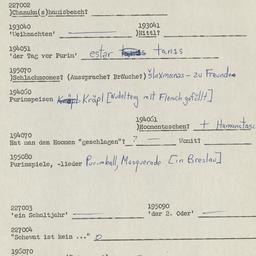 227002
)Chanuke(s)hauisbesch?
193040 193041
'Weihnachten' )Nittl?
194051
'der Tag vor Purim' ester tanss
195070
)Schlachmones? (Aussprache? Bräuche?) šlaxmones - zu Freunden
194060
Purimspeisen Kräpl [Nudelteig mit Fleisch gefüllt]
194061
)Homentaschen? + Hamantasc
194070
Hat man dem Hoomen "geschlagen"? ? Womit?
195080
Purimspiele, -lieder Purimball, Masquerade [in Breslau]
227003 195090
'ein Schaltjahr' 'der 2. Oder'
227004
"Schewut is kein ..." 0
196070